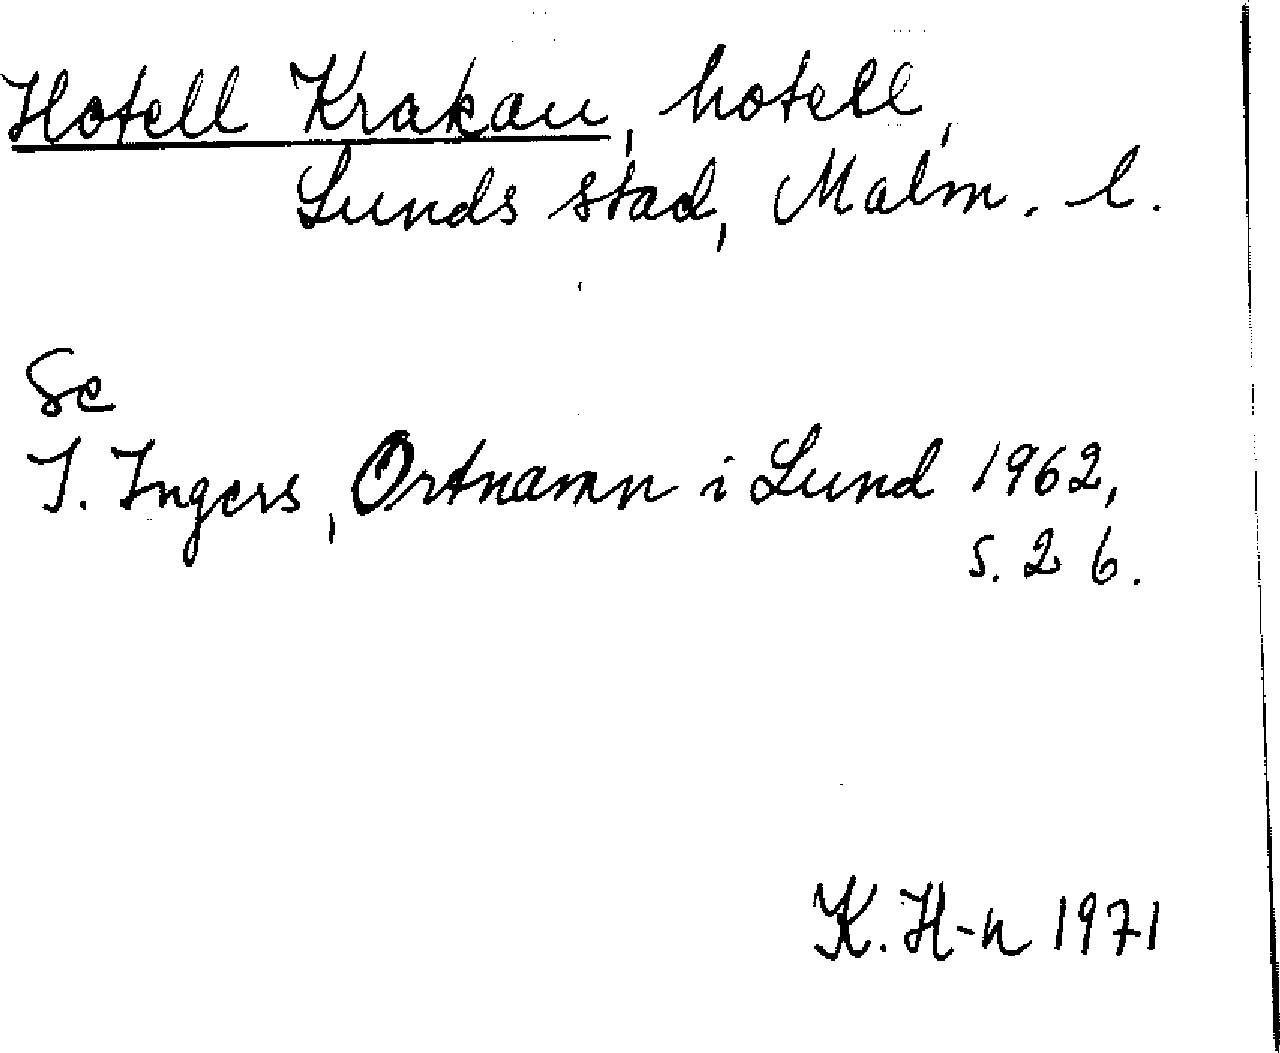 Hotell Krakau, hotell,
Lunds stad, Malm. l.
Se
I. Ingers, Ortnamn i Lund 1962,
s. 26.
K. H-n 1971